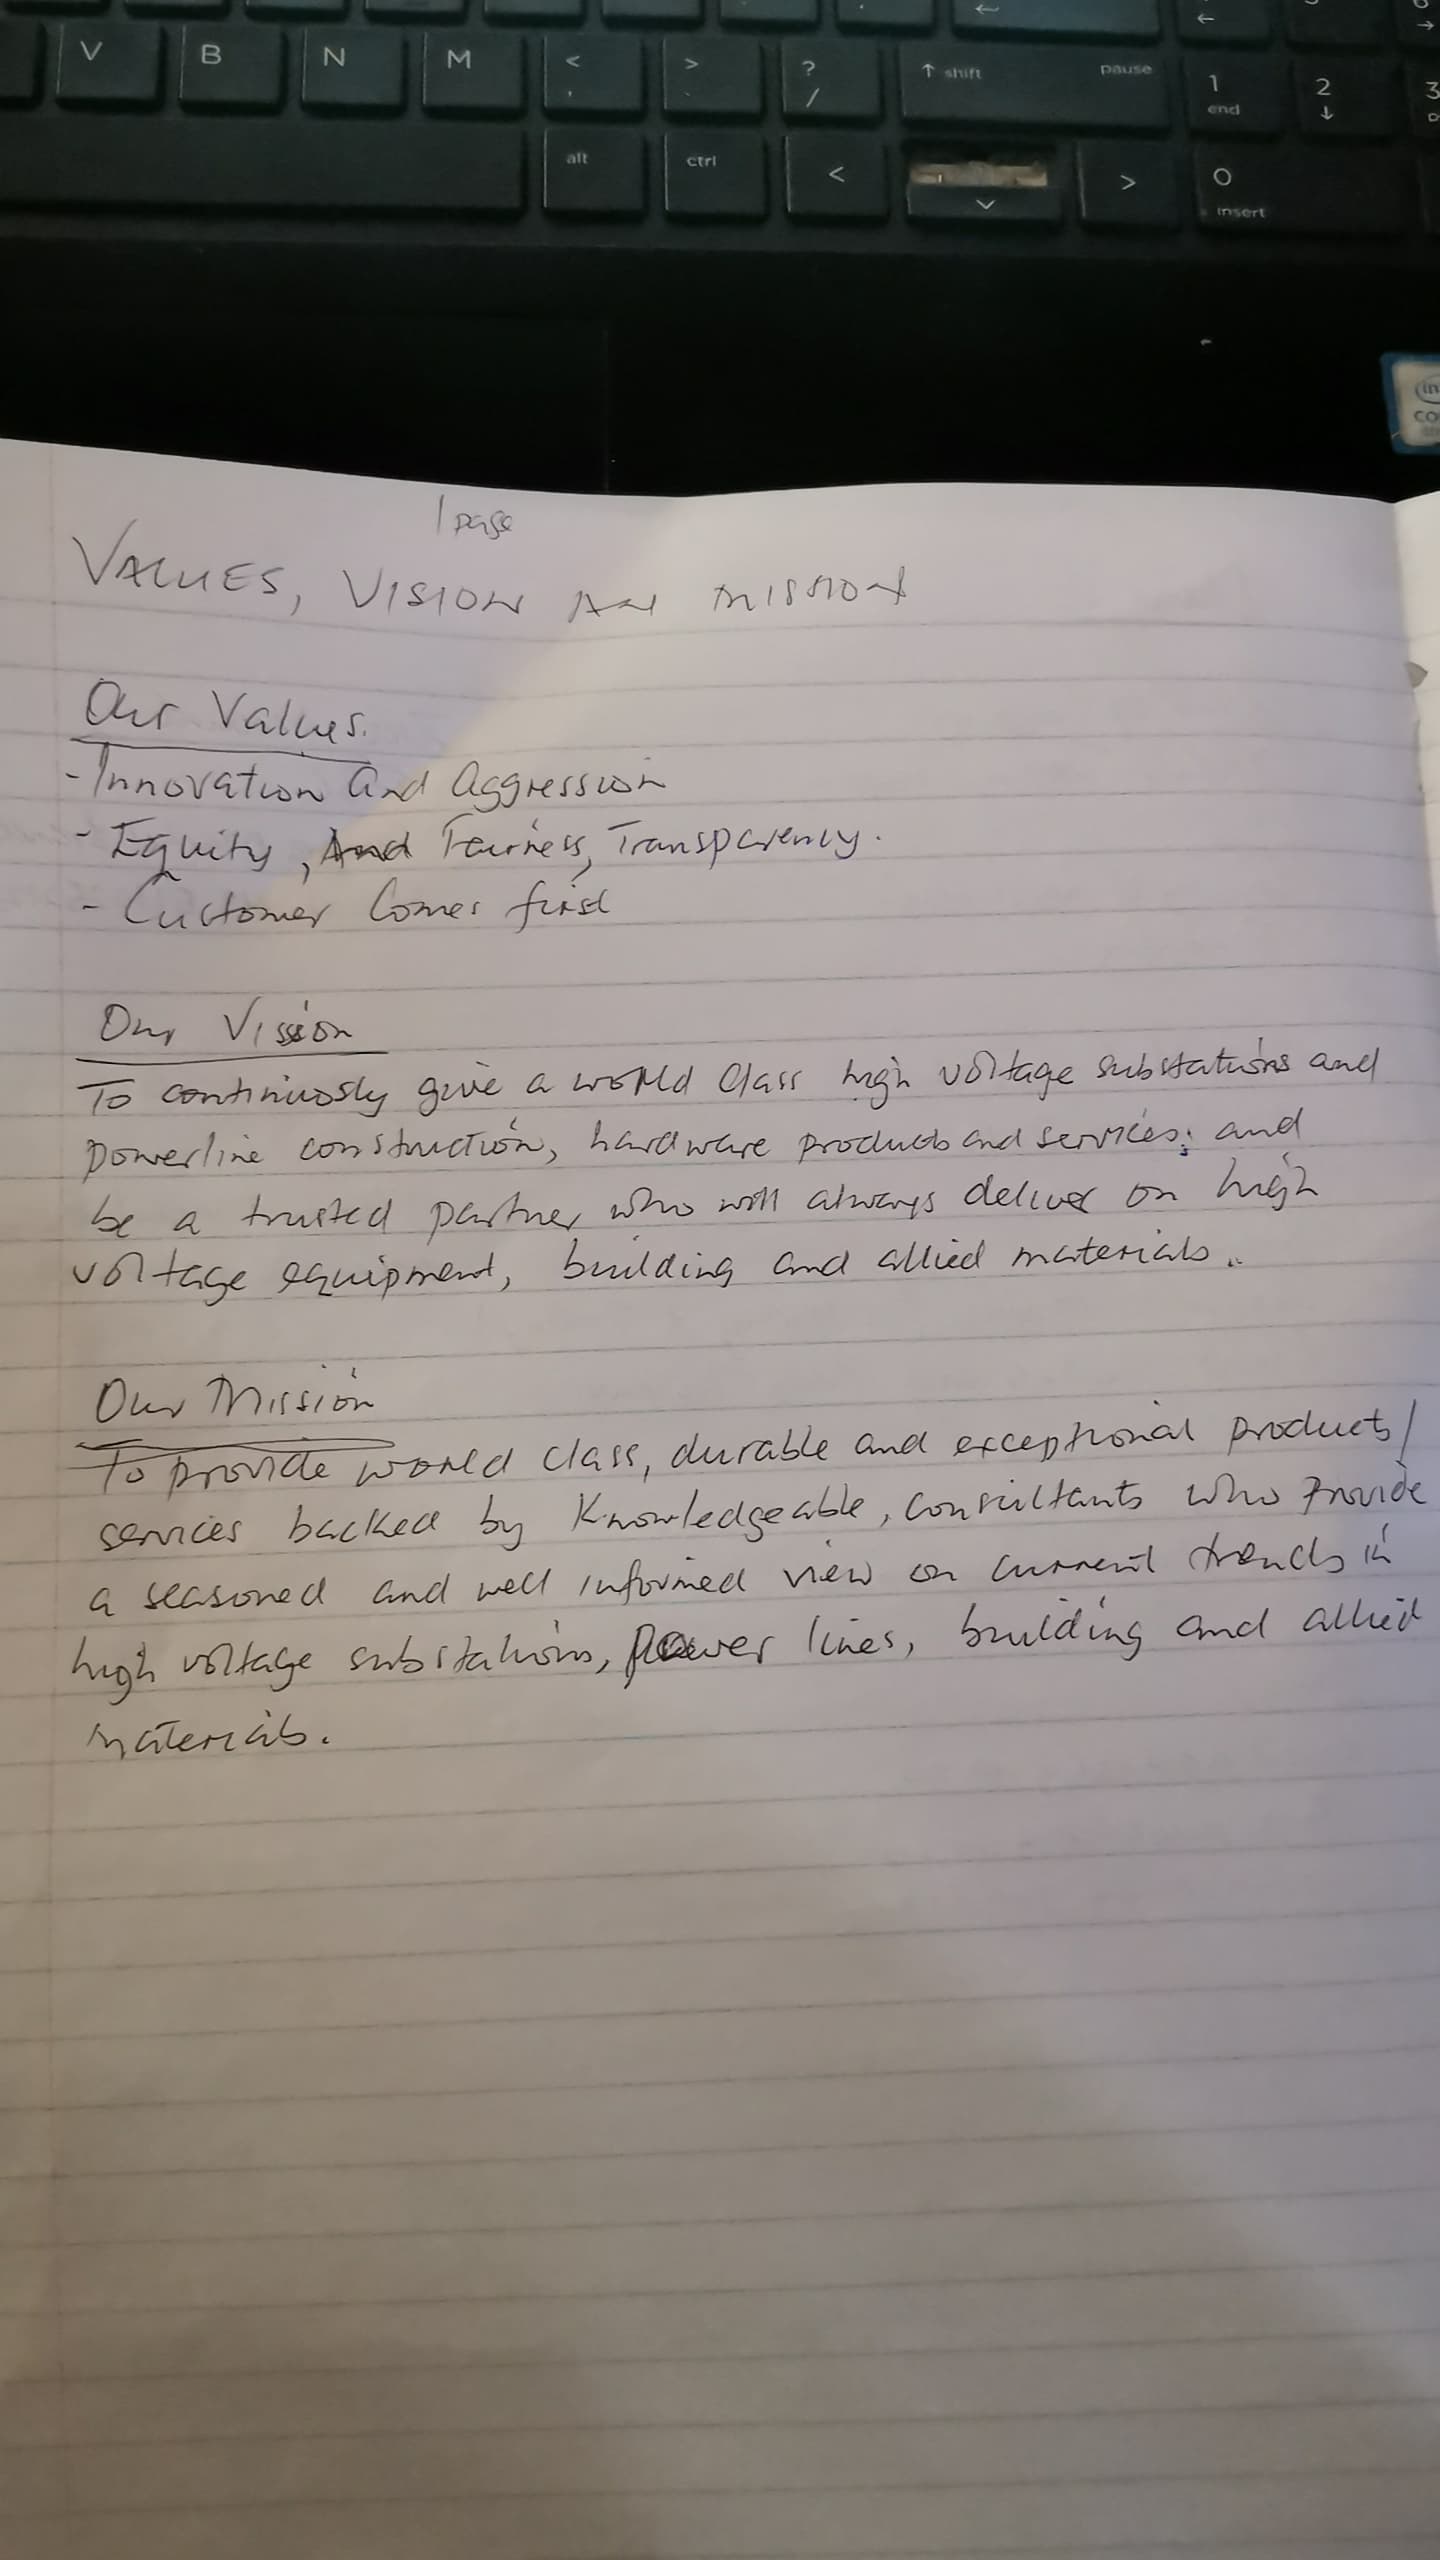 V B N M < , > . ? / ↑ shift pause 1 end 2 ↓ 3
alt ctrl < ∨ > 0 insert
1 page
VALUES, VISION AN MISSION
Our Values.
- Innovation and Aggression
- Equity, And Fairness, Transparency.
- Customer Comes first
Our Vission
To continuosly give a world class high voltage substations and
powerline construction, hardware products and services; and
be a trusted partner who will always deliver on high
voltage equipment, building and allied materials.
Our Mission
To provide world class, durable and exceptional products/
services backed by Knowledgeable, consultants who provide
a seasoned and well informed view on current trends in
high voltage substations, power lines, building and allied
materials.